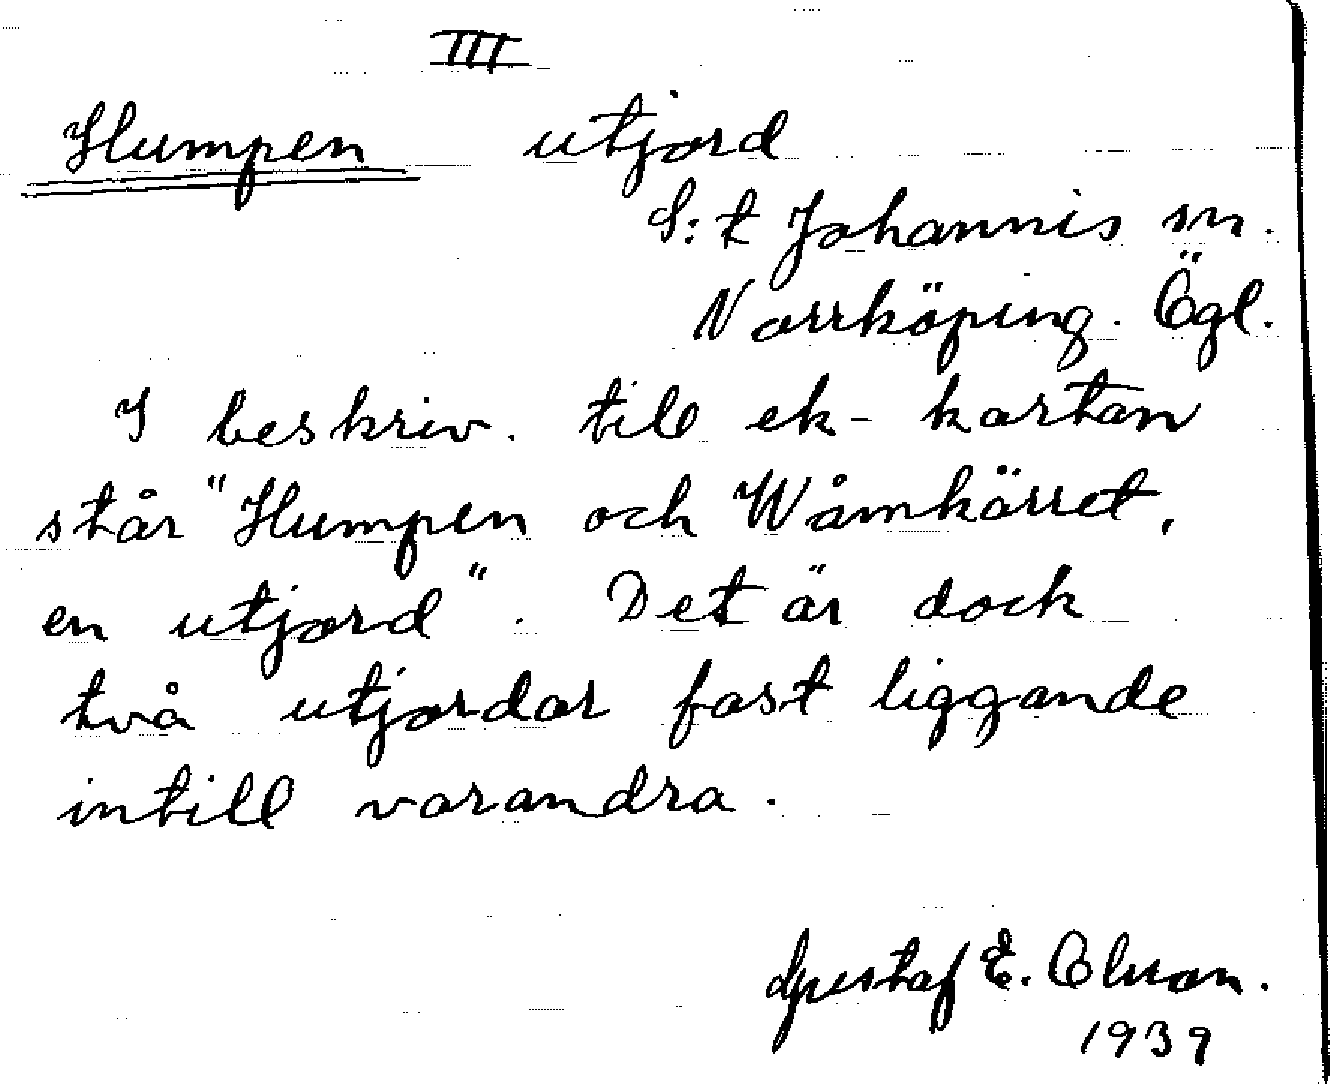 III
Humpen utjord
S:t Johannis sn.
Norrköping. Ögl.
I beskriv. till ek-kartan
står "Humpen och Wåmkärret,
en utjord". Det är dock
två utjordar fast liggande
intill varandra.
Gustaf E. Olson.
1939